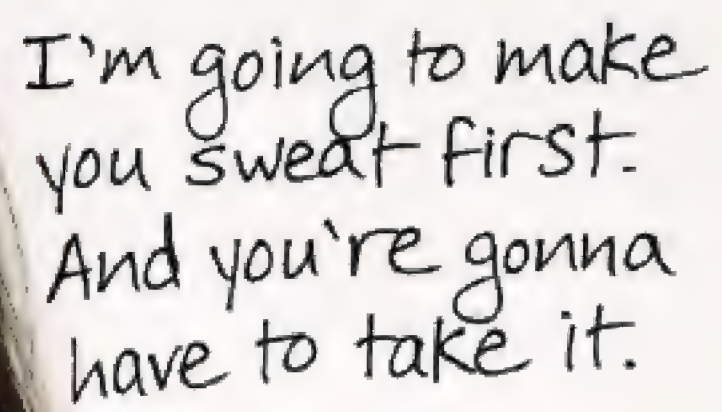 I'm going to make
you sweat first.
And you're gonna
have to take it.